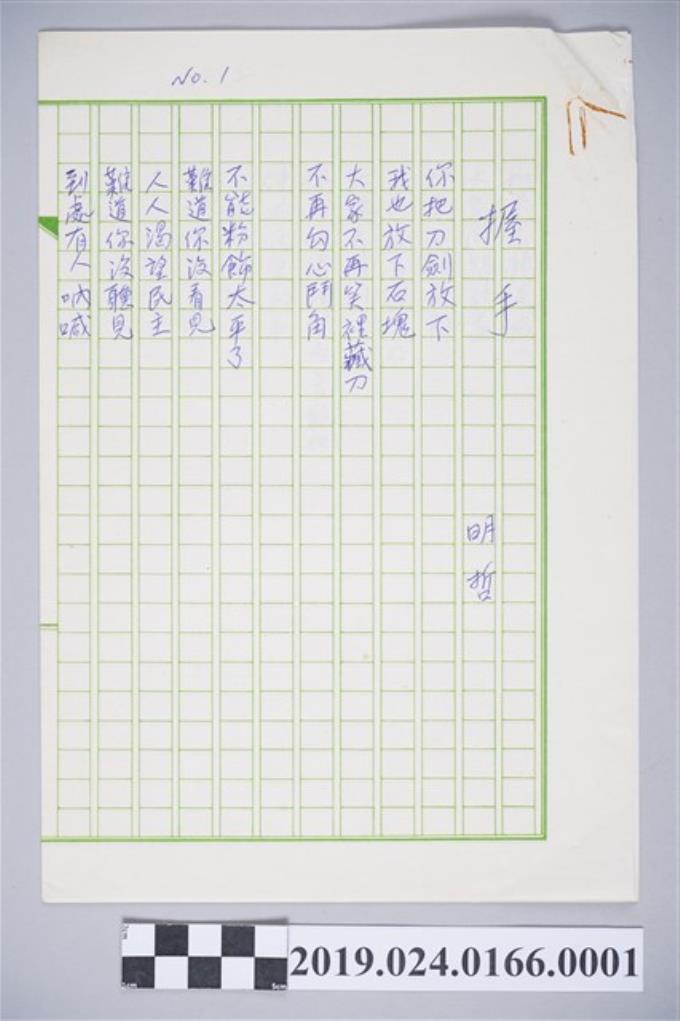 No. 1
握手
明哲
你把刀劍放下
我也放下石塊
大家不再笑裡藏刀
不再勾心鬥角
不能粉飾太平了
難道你沒看見
人人渴望民主
難道你沒聽見
到處有人吶喊
2019.024.0166.0001